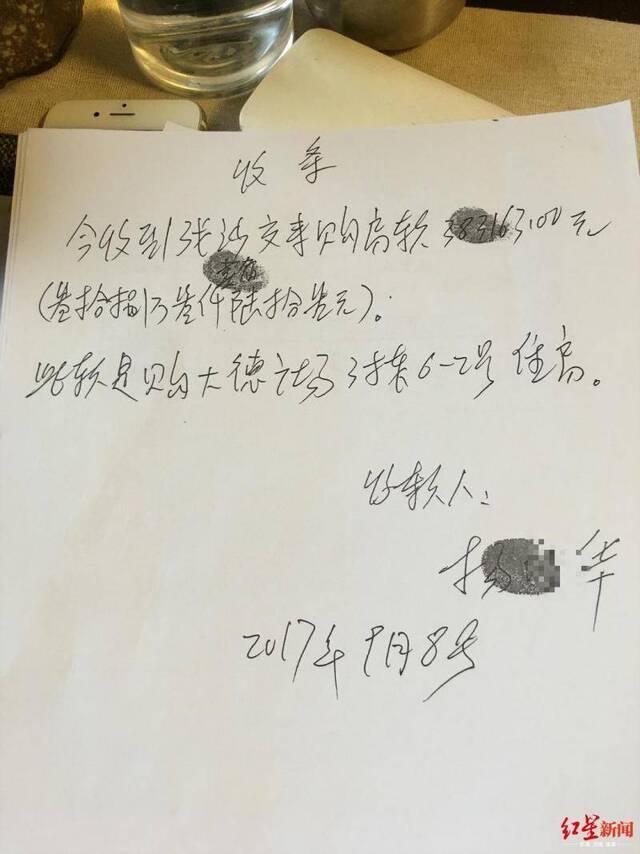 收条
今收到张 交来购房款383163.00元
(叁拾捌万叁仟 陆拾叁元)。
此款是购大德广场3栋6-2号住房。
收款人：
杨 华
2017年9月8号
红星新闻